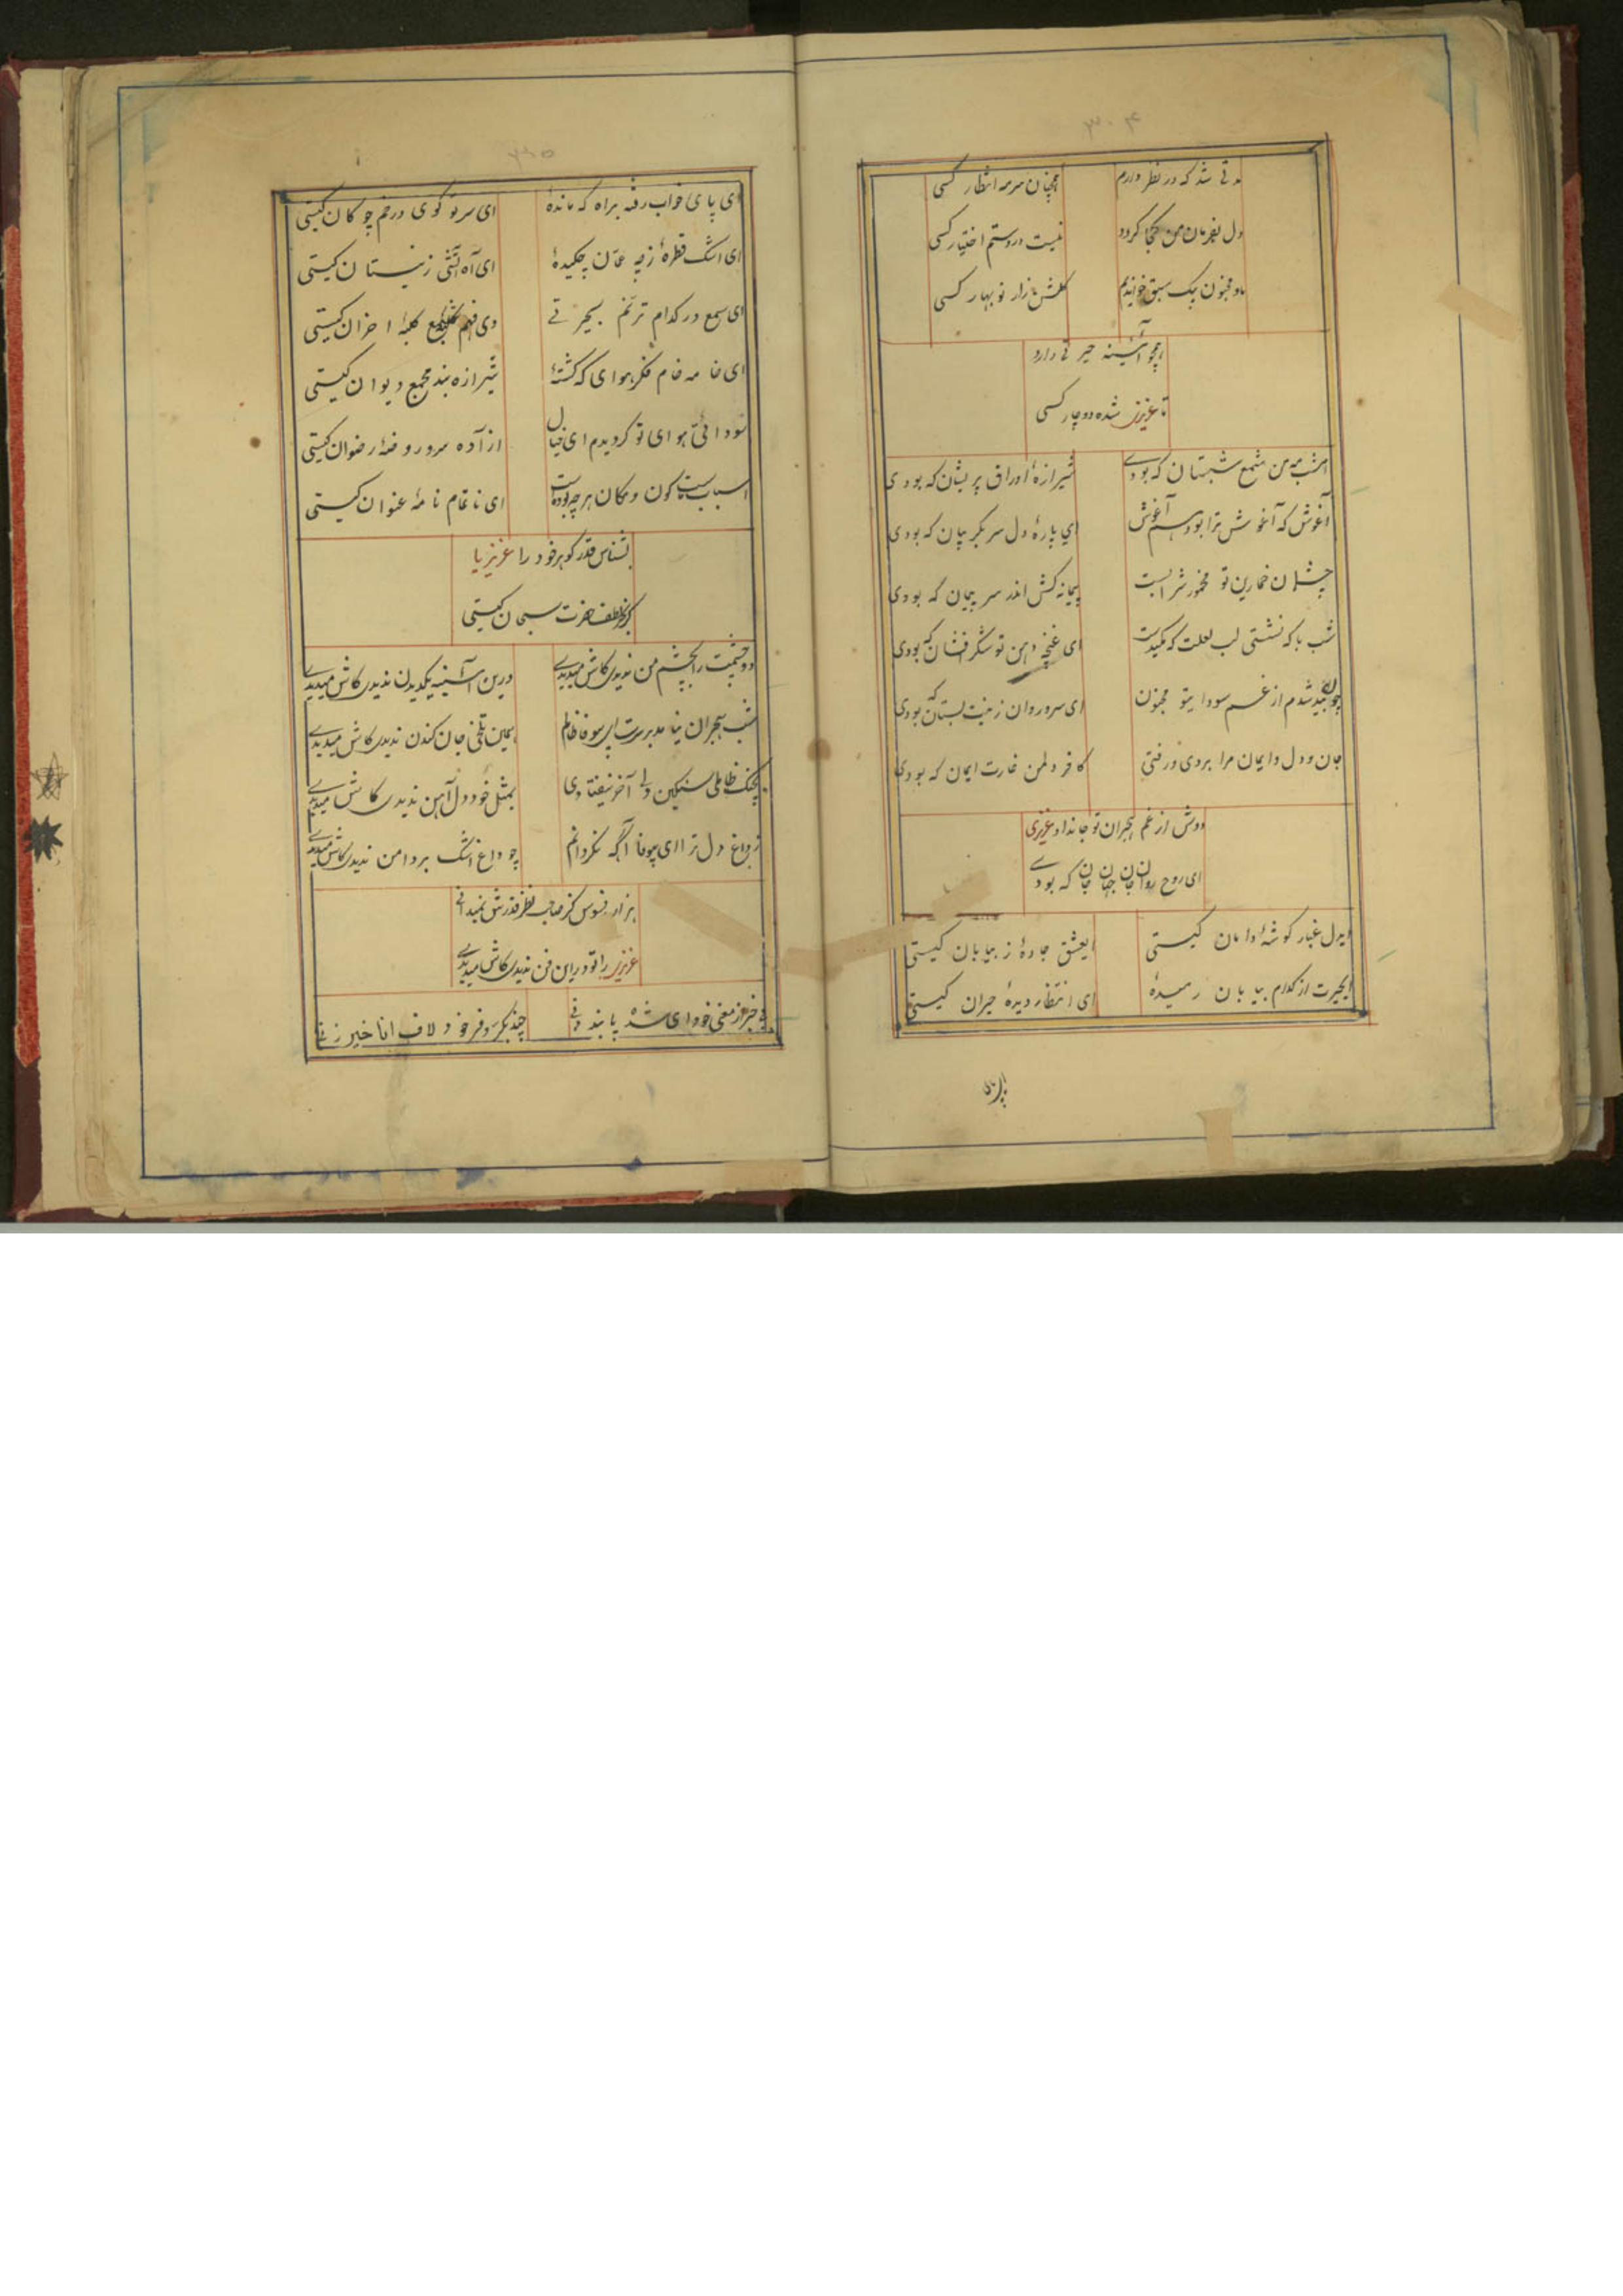 ۳۰۴
مدتی شد که در نظر دارم همچنان سرمه انتظار کسی
دل بفرمان من کجا گردد نیست در دستم اختیار کسی
ما و مجنون بیک سبق خواندیم گلشن زار نوبهار کسی
همچو آئینه حیرتی دارد
تا عزیزی شده دوچار کسی
امشب مه من شمع شبستان که بودے شیرازهٔ اوراق پریشان که بودی
آغوش که آغوش ترا بود هم آغوش ای پارهٔ دل سر بگریبان که بودی
چشمان خمارین تو مخمور شرابست پیمانه کش اندر سر پیمان که بودی
شب با که نشستی لب لعلت که مکیدست ای غنچه دهن تو شکرافشان که بودی
چون بید شدم از غم سودای تو مجنون ای سرو روان زینت بستان که بودی
جان و دل و ایمان مرا بردی و رفتی کافر دل من غارت ایمان که بودی
دوش از غم هجران تو جانداد عزیزی
ای روح روان جان جهان جان که بودے
ایدل غبار گوشهٔ دامان کیستی ایعشق جادهٔ ز بیابان کیستی
ایحیرت از کدام بیابان رمیدهٔ ای انتظار دیدهٔ حیران کیستی
ای پای
۳۰۵
ای پای خواب رفته براه که ماندهٔ ای سر تو گوی در خم چوگان کیستی
ای اشک قطرهٔ ز چه عمان چکیدهٔ ای آه آتشی ز نیستان کیستی
ای سمع در کدام ترنم بحیرتی وی فهم شمع کلبهٔ احزان کیستی
ای خامه خام فکر هوای که گشتهٔ شیرازه بند مجمع دیوان کیستی
سودائی هوای تو گردیدم ای خیال آزاده سرو روضهٔ رضوان کیستی
اسباب تست کون و مکان هر چه بوده است ای ناتمام نامهٔ عنوان کیستی
بشناس قدر گوهر خود را عزیزیا
کز لطف حضرت سبحان کیستی
دو چشمت را بچشم من ندیدی کاش میدیدے درین آئینه یکدیدن ندیدی کاش میدیدے
شب هجران نیامد بر سرت ای بیوفا ظالم همین تلخی جان کندن ندیدی کاش میدیدے
بچنگ ظالمی سنگین دلی آخر نیفتادی بمثل خود دل آهن ندیدی کاش میدیدے
ز داغ دل ترا ای بیوفا آگه نگردانم چو داغ اشک بر دامن ندیدی کاش میدیدے
هزار افسوس کز صاحب نظر قدرش نمیدانی
عزیزی را تو در این فن ندیدی کاش میدیدے
بی خبر از معنی خود ای شده پابند دنی چند بکر و فر خود لاف انا خیر زنی